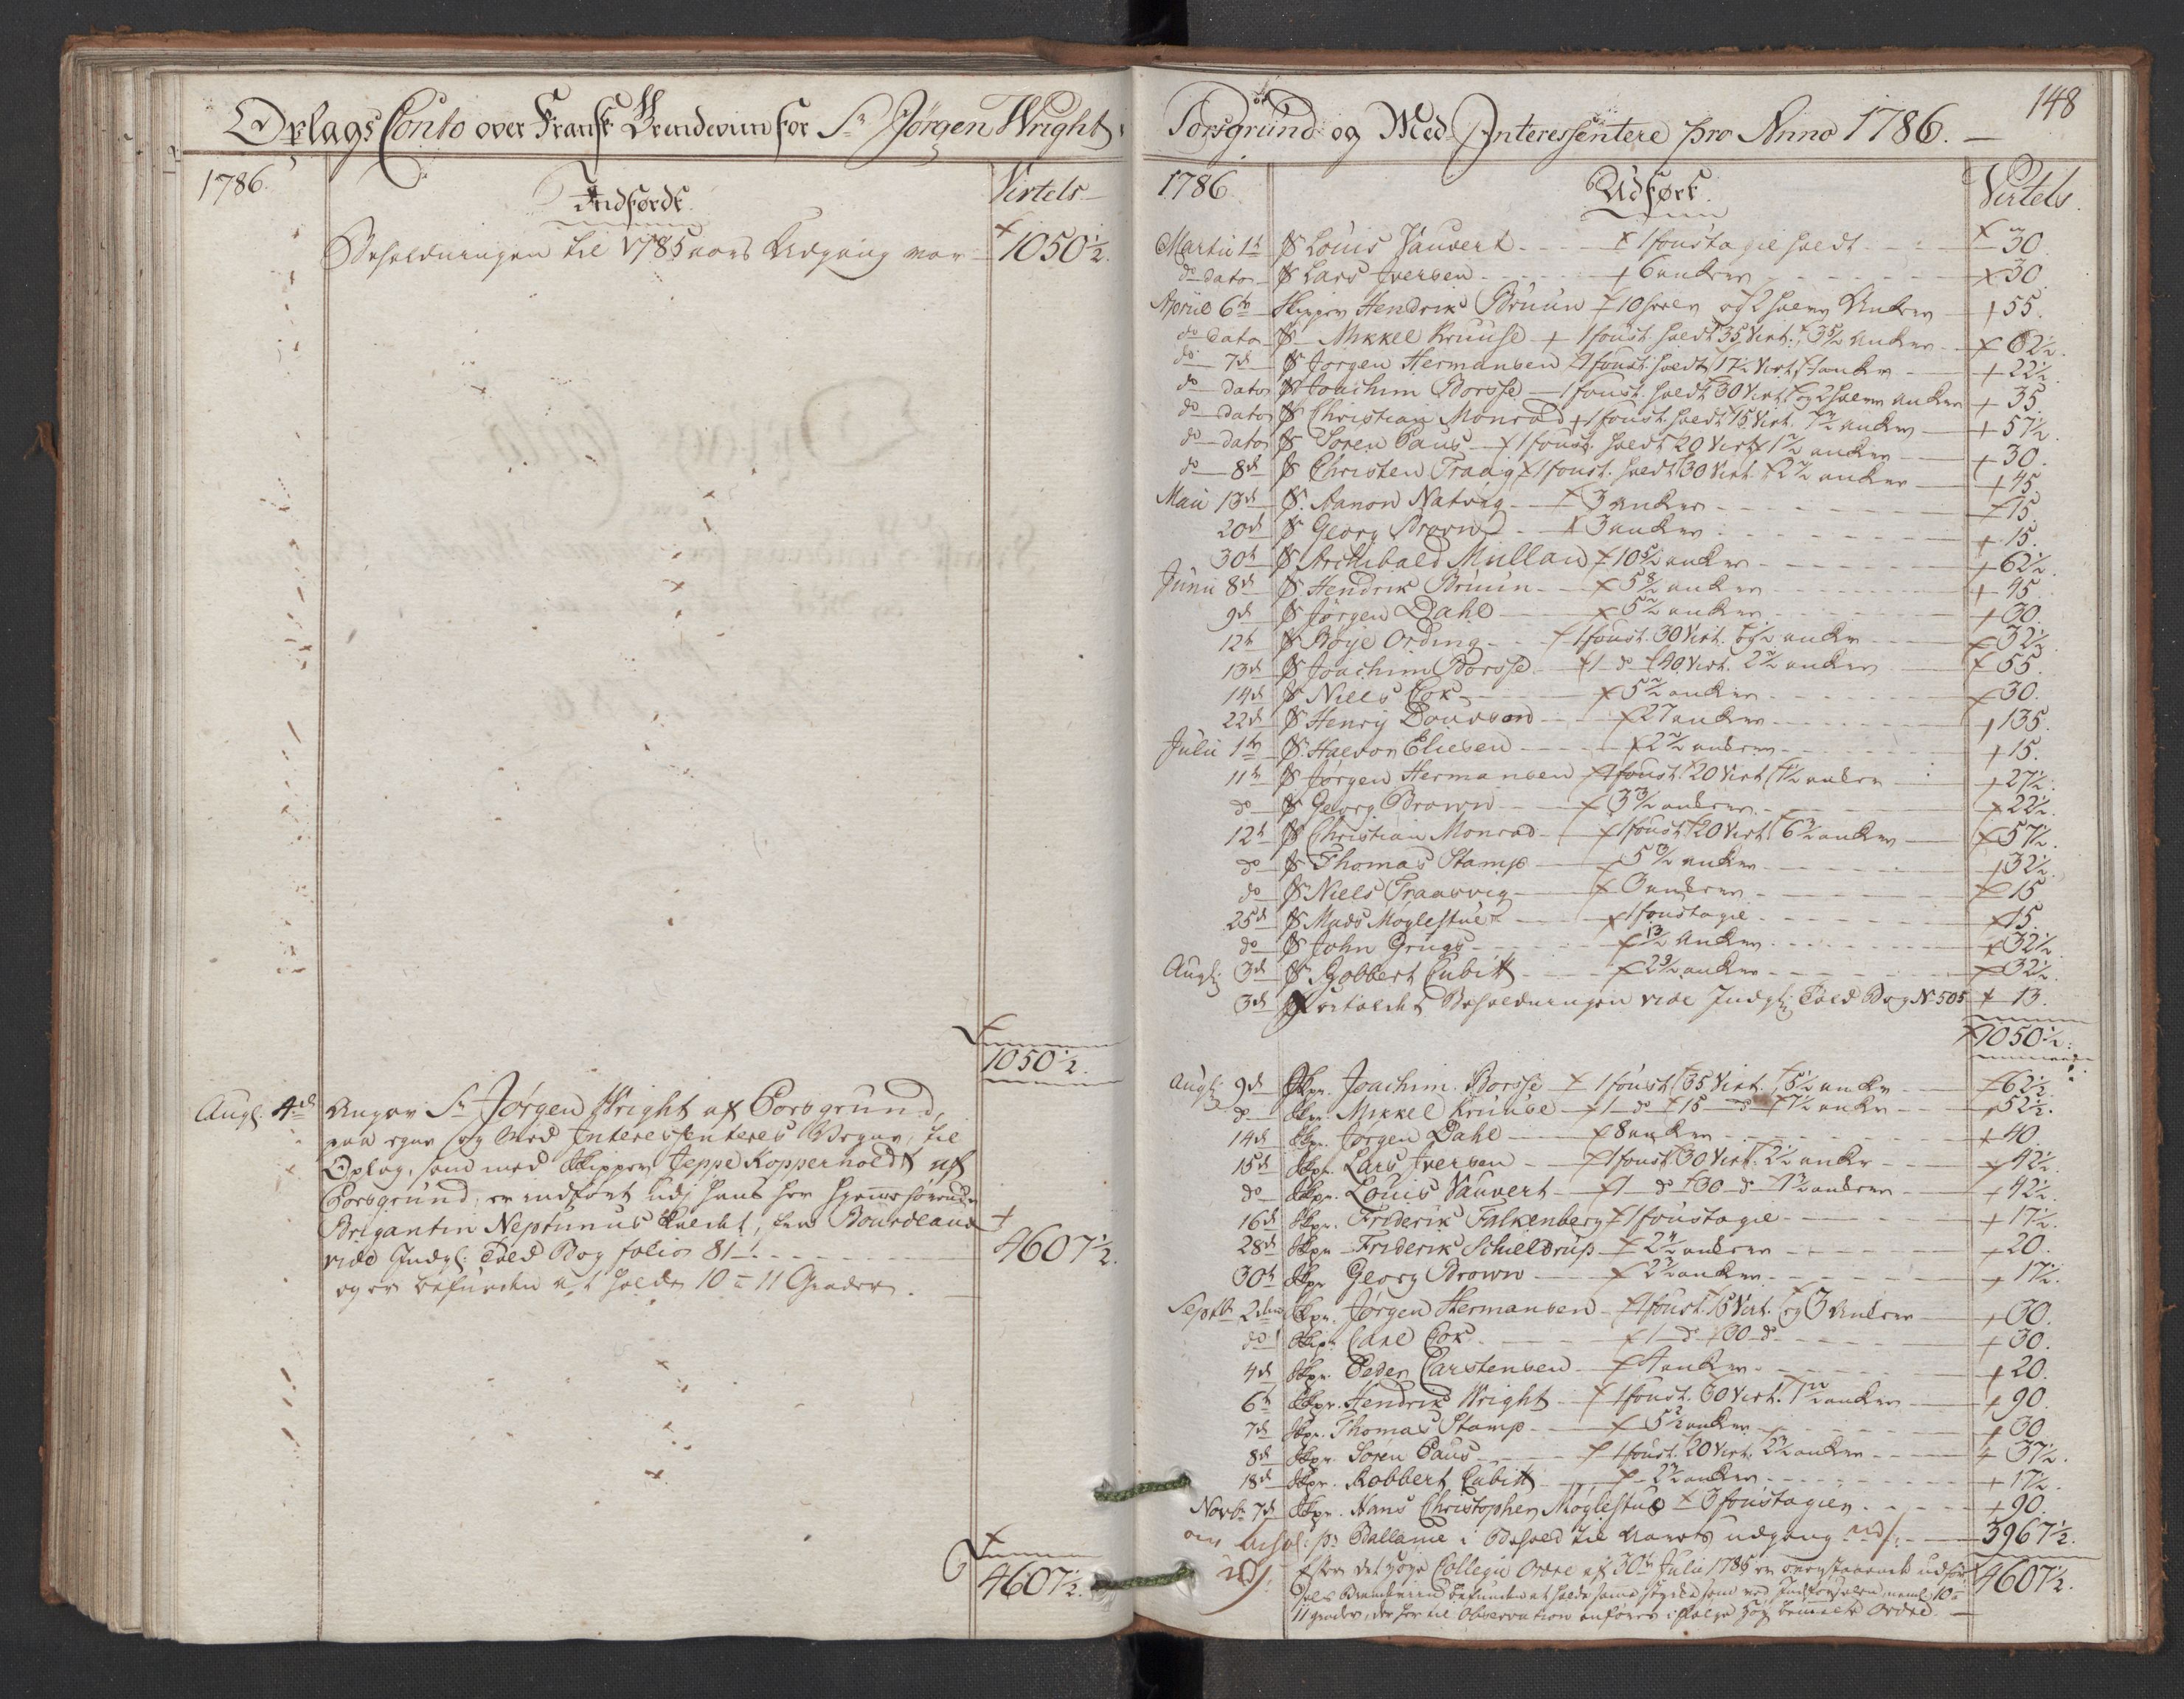 Oplags Conto over Fransk Brendeviin for Sr Jørgen Wright
1786.
Indførdt.
Virtels
Beholdningen til 1785 aars Udgang var
1050½.
1050½.
Augt. 4de
Angav Sr Jørgen Wright af Porsgrund,
paa egne og Med Interessenteres Vegne, til
Oplag, som med Skipper Jeppe Kopperholdt af
Porsgrund, er indført udj hans her hjemmehørende
Brigantin Neptunus kaldet, fra Bourdeaux
vide Indgl: Told Bog folio 81
4607½.
og er befunden at holde 10 a 11 Grader.
4607½.
148
Porsgrund og Med Interessentere pro Anno 1786.
1786.
Udført.
Virtels.
Martii 1te Sr Louis Vauvert 1 foustagie holdt 30
do dato Sr Lars Iversen 6 ankere 30
Aprili 6te Skipper Hendrik Bruun 10 heele og 2 halve Ankere 55.
do dato Sr Mikkel Kruuse 1 foust. holdt 35 Virt. 3 5/2 anker 62½.
do 7de Sr Jørgen Hermansen 1 foust. holdt 17½ Virt. 1 anker 22½.
do dato Sr Joachim Borsse 1 foust. holdt 30 Virt. og 2 halve anker 35
do dato Sr Christian Monrad 1 foust. holdt 15 Virt. ankere 57½.
do dato Sr Søren Paus 1 foust. holdt 20 Virt. 1 2/2 anker 30.
do 8de Sr Christen Traaig 1 foust. holdt 30 Virt. 2 2/2 anker 45
Maii 13de Sr Aanon Natvig 3 ankere 15.
20de Sr Georg Brown 3 ankere 15.
30te Sr Archibald Mullan 10 5/2 ankere 62½.
Junii 8de Sr Hendrik Bruun 5 8/2 ankere 45
9de Sr Jørgen Dahl 5 2/2 ankere 30.
12te Sr Boye Ording 1 foust. 30 Virt. og ½ anker 32½.
13de Sr Joachim Borsse 1 do 40 Virt. 2 2/2 ankere 55.
14de Sr Niels Cox 5 2/2 ankere 30.
22de Sr Henry Dowson 27 ankere 135.
Julii 1te Sr Halvor Eliesen 2 2/2 ankere 15.
11te Sr Jørgen Hermansen 1 foust. 20 Virt. 1½ anker 27½.
do Sr Georg Brown 3 3/2 ankere 22½.
12te Sr Christian Monrad 1 foust. 20 Virt. 6 3/2 ankere 57½.
do Sr Thomas Stamp 5 3/2 ankere 32½.
do Sr Niels Traasvig 3 ankere 15
25de Sr Mads Møglestue 1 foustagie 15.
do Sr John Grugs 13/2 Ankere 32½.
Augt. 3de Sr Robbert Cubitt 2 9/2 anker 32½.
3de Fortoldet Beholdningen vide Indgl: Told Bog No 505 13.
1050½.
Augt. 9de Skpr. Joachim Borsse 1 foust. 35 Virt. 5½ anker 62½.
do Skpr. Mikkel Kruuse 1 do 15 do 7½ anker 52½.
14de Skpr. Jørgen Dahl 8 anker 40.
15de Skpr. Lars Iversen 1 foust. 30 Virt. 2½ anker 42½.
do Skpr. Louis Vauvert 1 do 30 do 1 3/2 ankere 42½.
16de Skpr. Friderik Falkenberg 1 foustagie 17½.
28de Skpr. Friderik Schieldrup 2 4/2 ankere 20.
30te Skpr. Georg Brown 2 3/2 anker 17½.
Septbr 2den Skpr. Jørgen Hermansen 1 foust. 15 Virt. og 3 Ankere 30.
do Skpr. Carl Cox 1 do 30 do 30.
4de Skpr. Peder Carstensen 4 anker 20.
6te Skpr. Hendrik Wright 1 foust. 60 Virt. ankere 90.
7de Skpr. Thomas Stamp 5 2/2 anker 30
8de Skpr. Søren Paus 1 foust. 20 Virt. 2 3/2 anker 37½.
18de Skpr. Robbert Cubitt 2 3/2 anker 17½.
Novbr 7de Skpr. Hans Christopher Møglestue 3 foustagier 90.
pr Ballance i Behold til Aarets udgang 3967½.
4607½.
Efter det høye Collegii Ordre af 30te Julii 1785 er ovenstaaende udførte
Brendeviin befunden at holde samme Styrke som ved Indførselen, neml: 10 a
11 grader, der her til Observation anføres i følge høy bemelte Ordre.